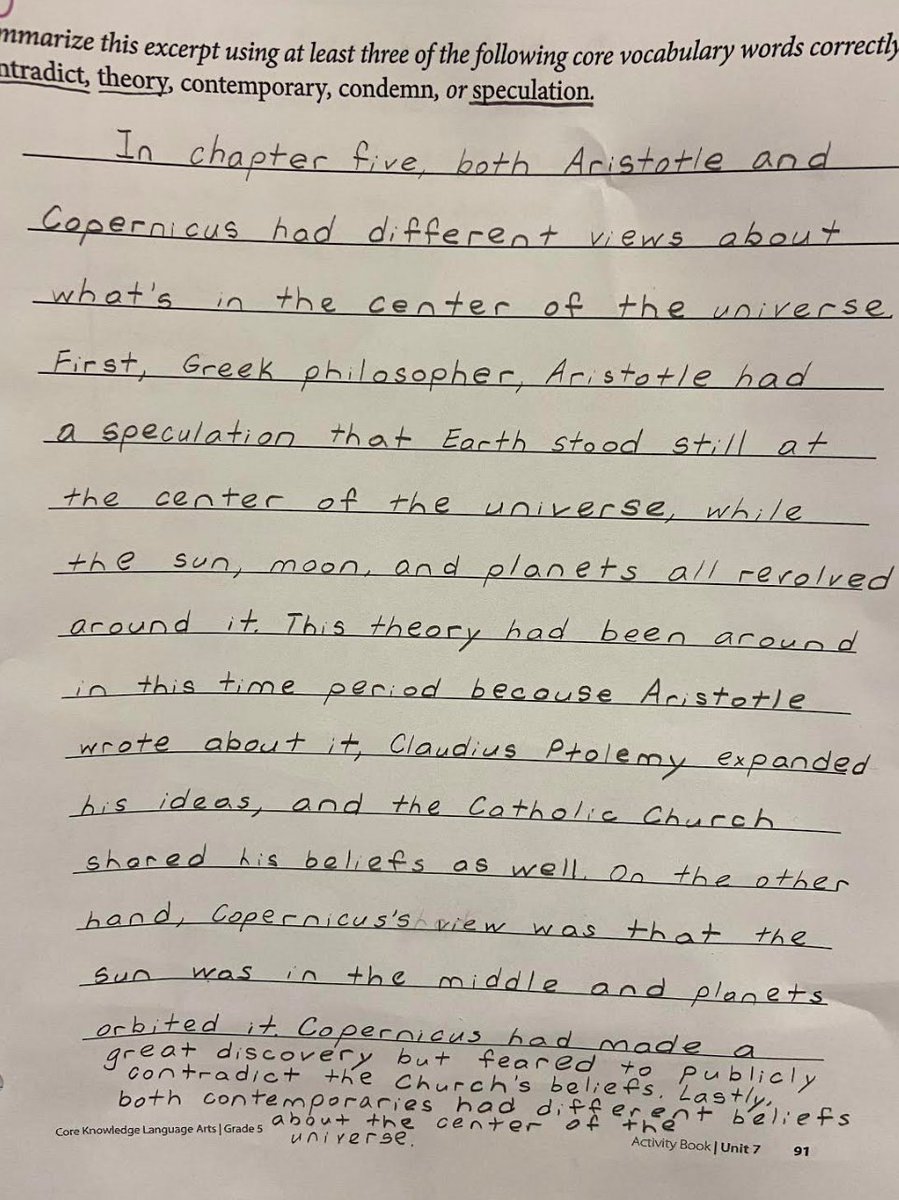 mmarize this excerpt using at least three of the following core vocabulary words correctly
ntradict, theory, contemporary, condemn, or speculation.
In chapter five, both Aristotle and
Copernicus had different views about
what's in the center of the universe.
First, Greek philosopher, Aristotle had
a speculation that Earth stood still at
the center of the universe, while
the sun, moon, and planets all revolved
around it. This theory had been around
in this time period because Aristotle
wrote about it, Claudius Ptolemy expanded
his ideas, and the Catholic Church
shared his beliefs as well. On the other
hand, Copernicus's view was that the
sun was in the middle and planets
orbited it. Copernicus had made a
great discovery but feared to publicly
contradict the Church's beliefs. Lastly,
both contemporaries had different beliefs
about the center of the
universe.
Core Knowledge Language Arts | Grade 5
Activity Book | Unit 7 91